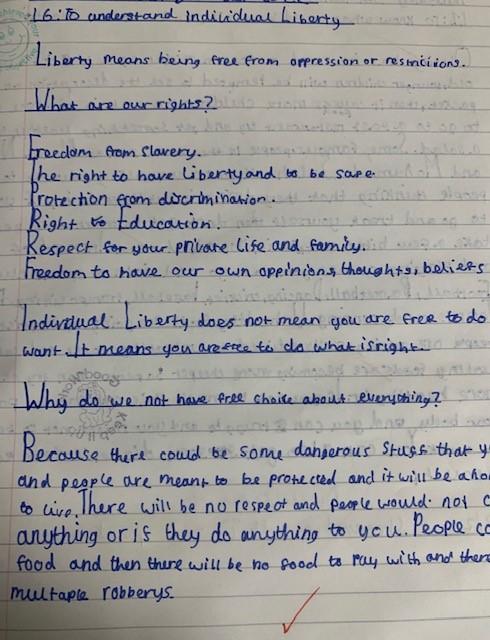 L6: To understand individual Liberty
Liberty means being free from oppression or restriciions.
What are our rights?
Freedom from Slavery.
The right to have Liberty and to be safe.
Protection from discrimination.
Right to Education.
Respect for your private life and family.
Freedom to have our own oppinions, thoughts, beliefs
Individual Liberty does not mean you are free to do
want. It means you are free to do what is right.
Why do we not have free choice about everything?
Because there could be some dangerous stuff that y
and people are meant to be protected and it will be a ho
to live. There will be no respect and people would not c
anything or if they do anything to you. People co
food and then there will be no food to pay with and there
multaple robberys.
Good work
Keep it up